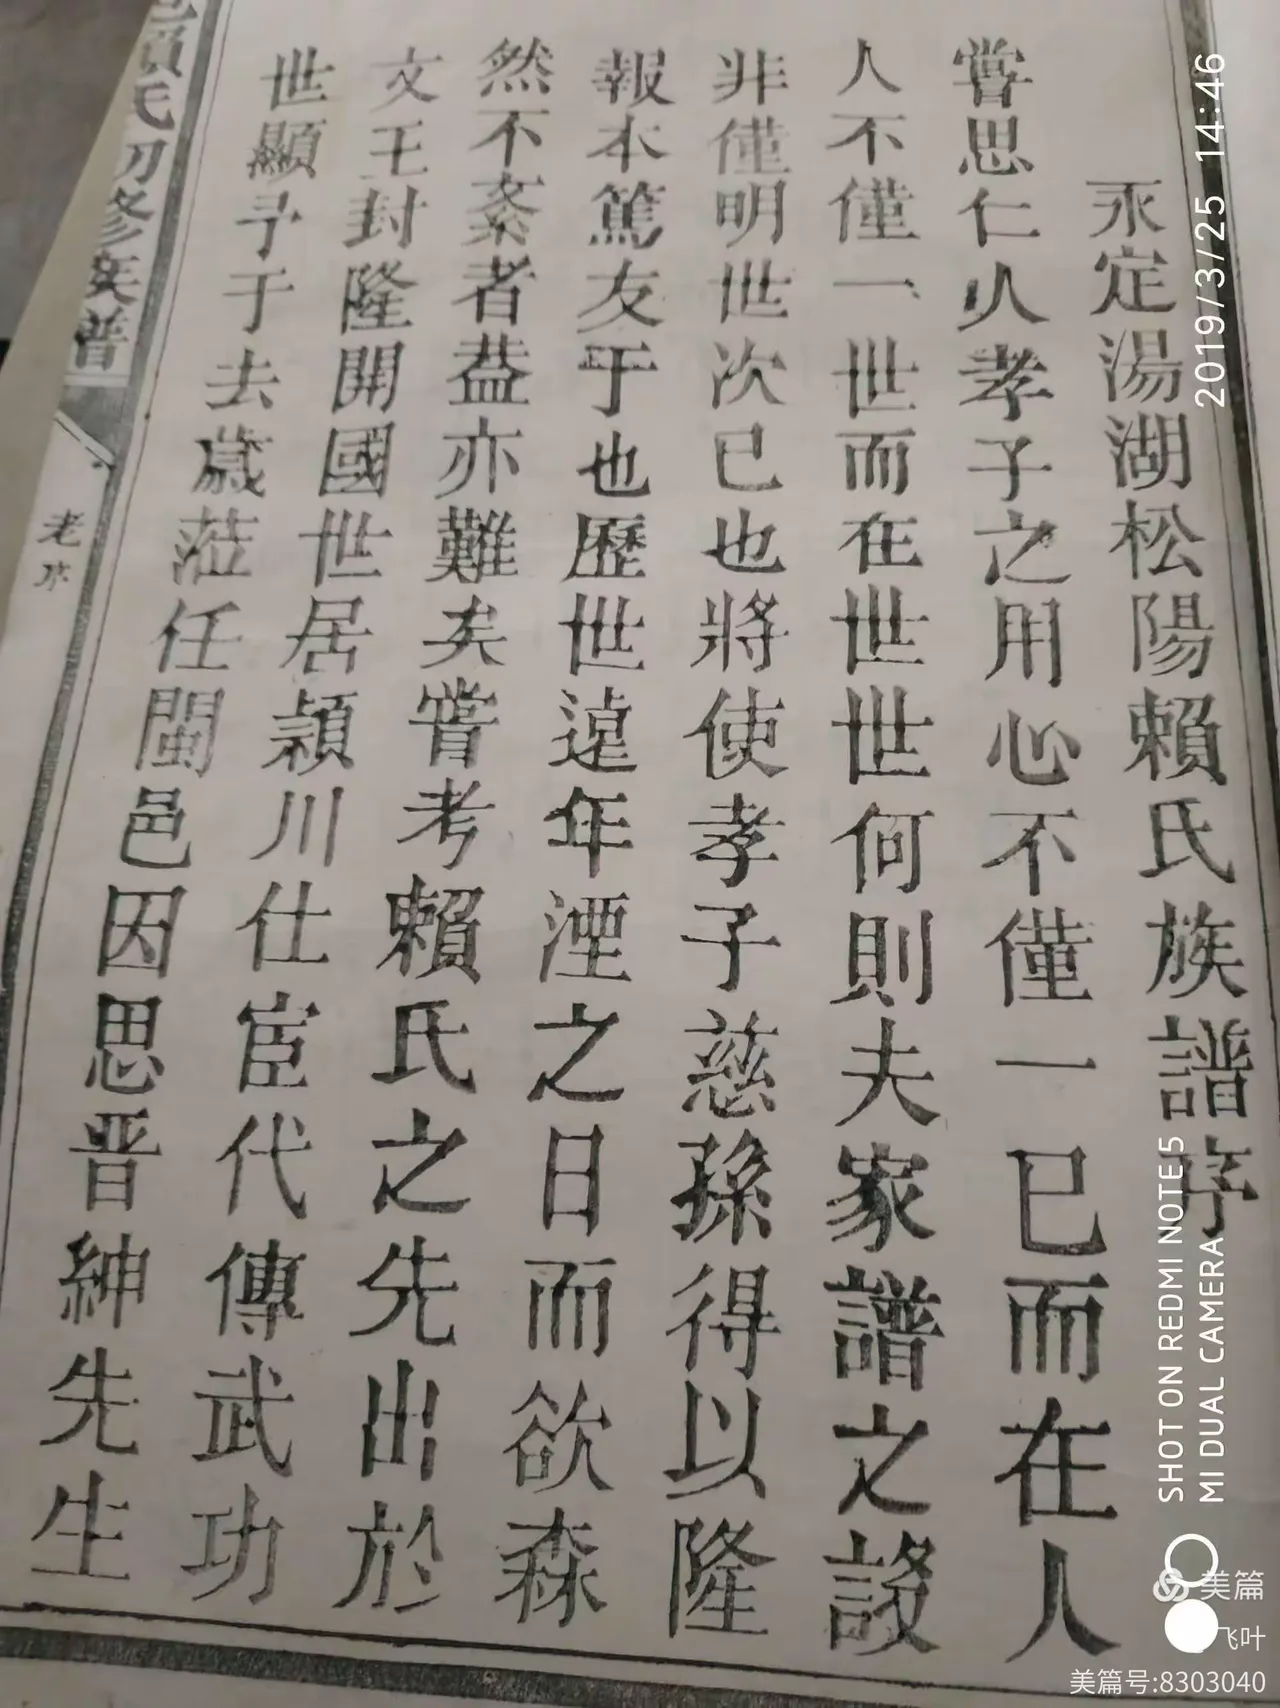 永定湯湖松陽賴氏族譜序
嘗思仁人孝子之用心不僅一已而在人
人不僅一世而在世世何則夫家譜之設
非僅明世次已也將使孝子慈孫得以隆
報本篤友于也歷世遠年湮之日而欲森
然不紊者葢亦難矣嘗考賴氏之先出於
文王封隆開國世居潁川仕宦代傳武功
世顯予于去歲蒞任閩邑因思晋紳先生
賴氏初修族譜
老序
2019/3/25 14:46
SHOT ON REDMI NOTE5
MI DUAL CAMERA
美篇
飞叶
美篇号:8303040